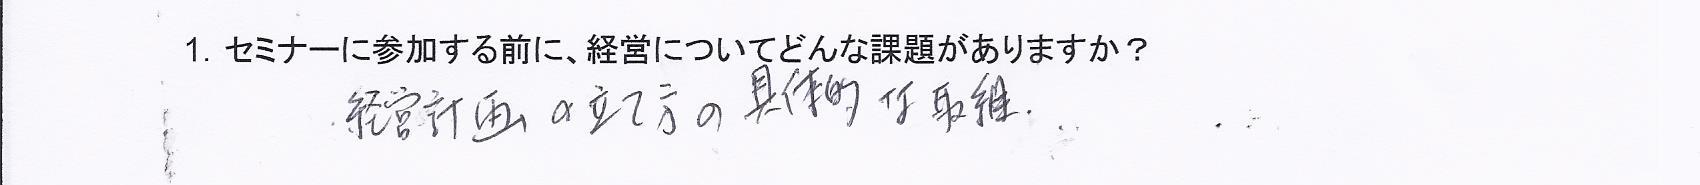 1. セミナーに参加する前に、経営についてどんな課題がありますか？
経営計画の立て方の具体的な取組.